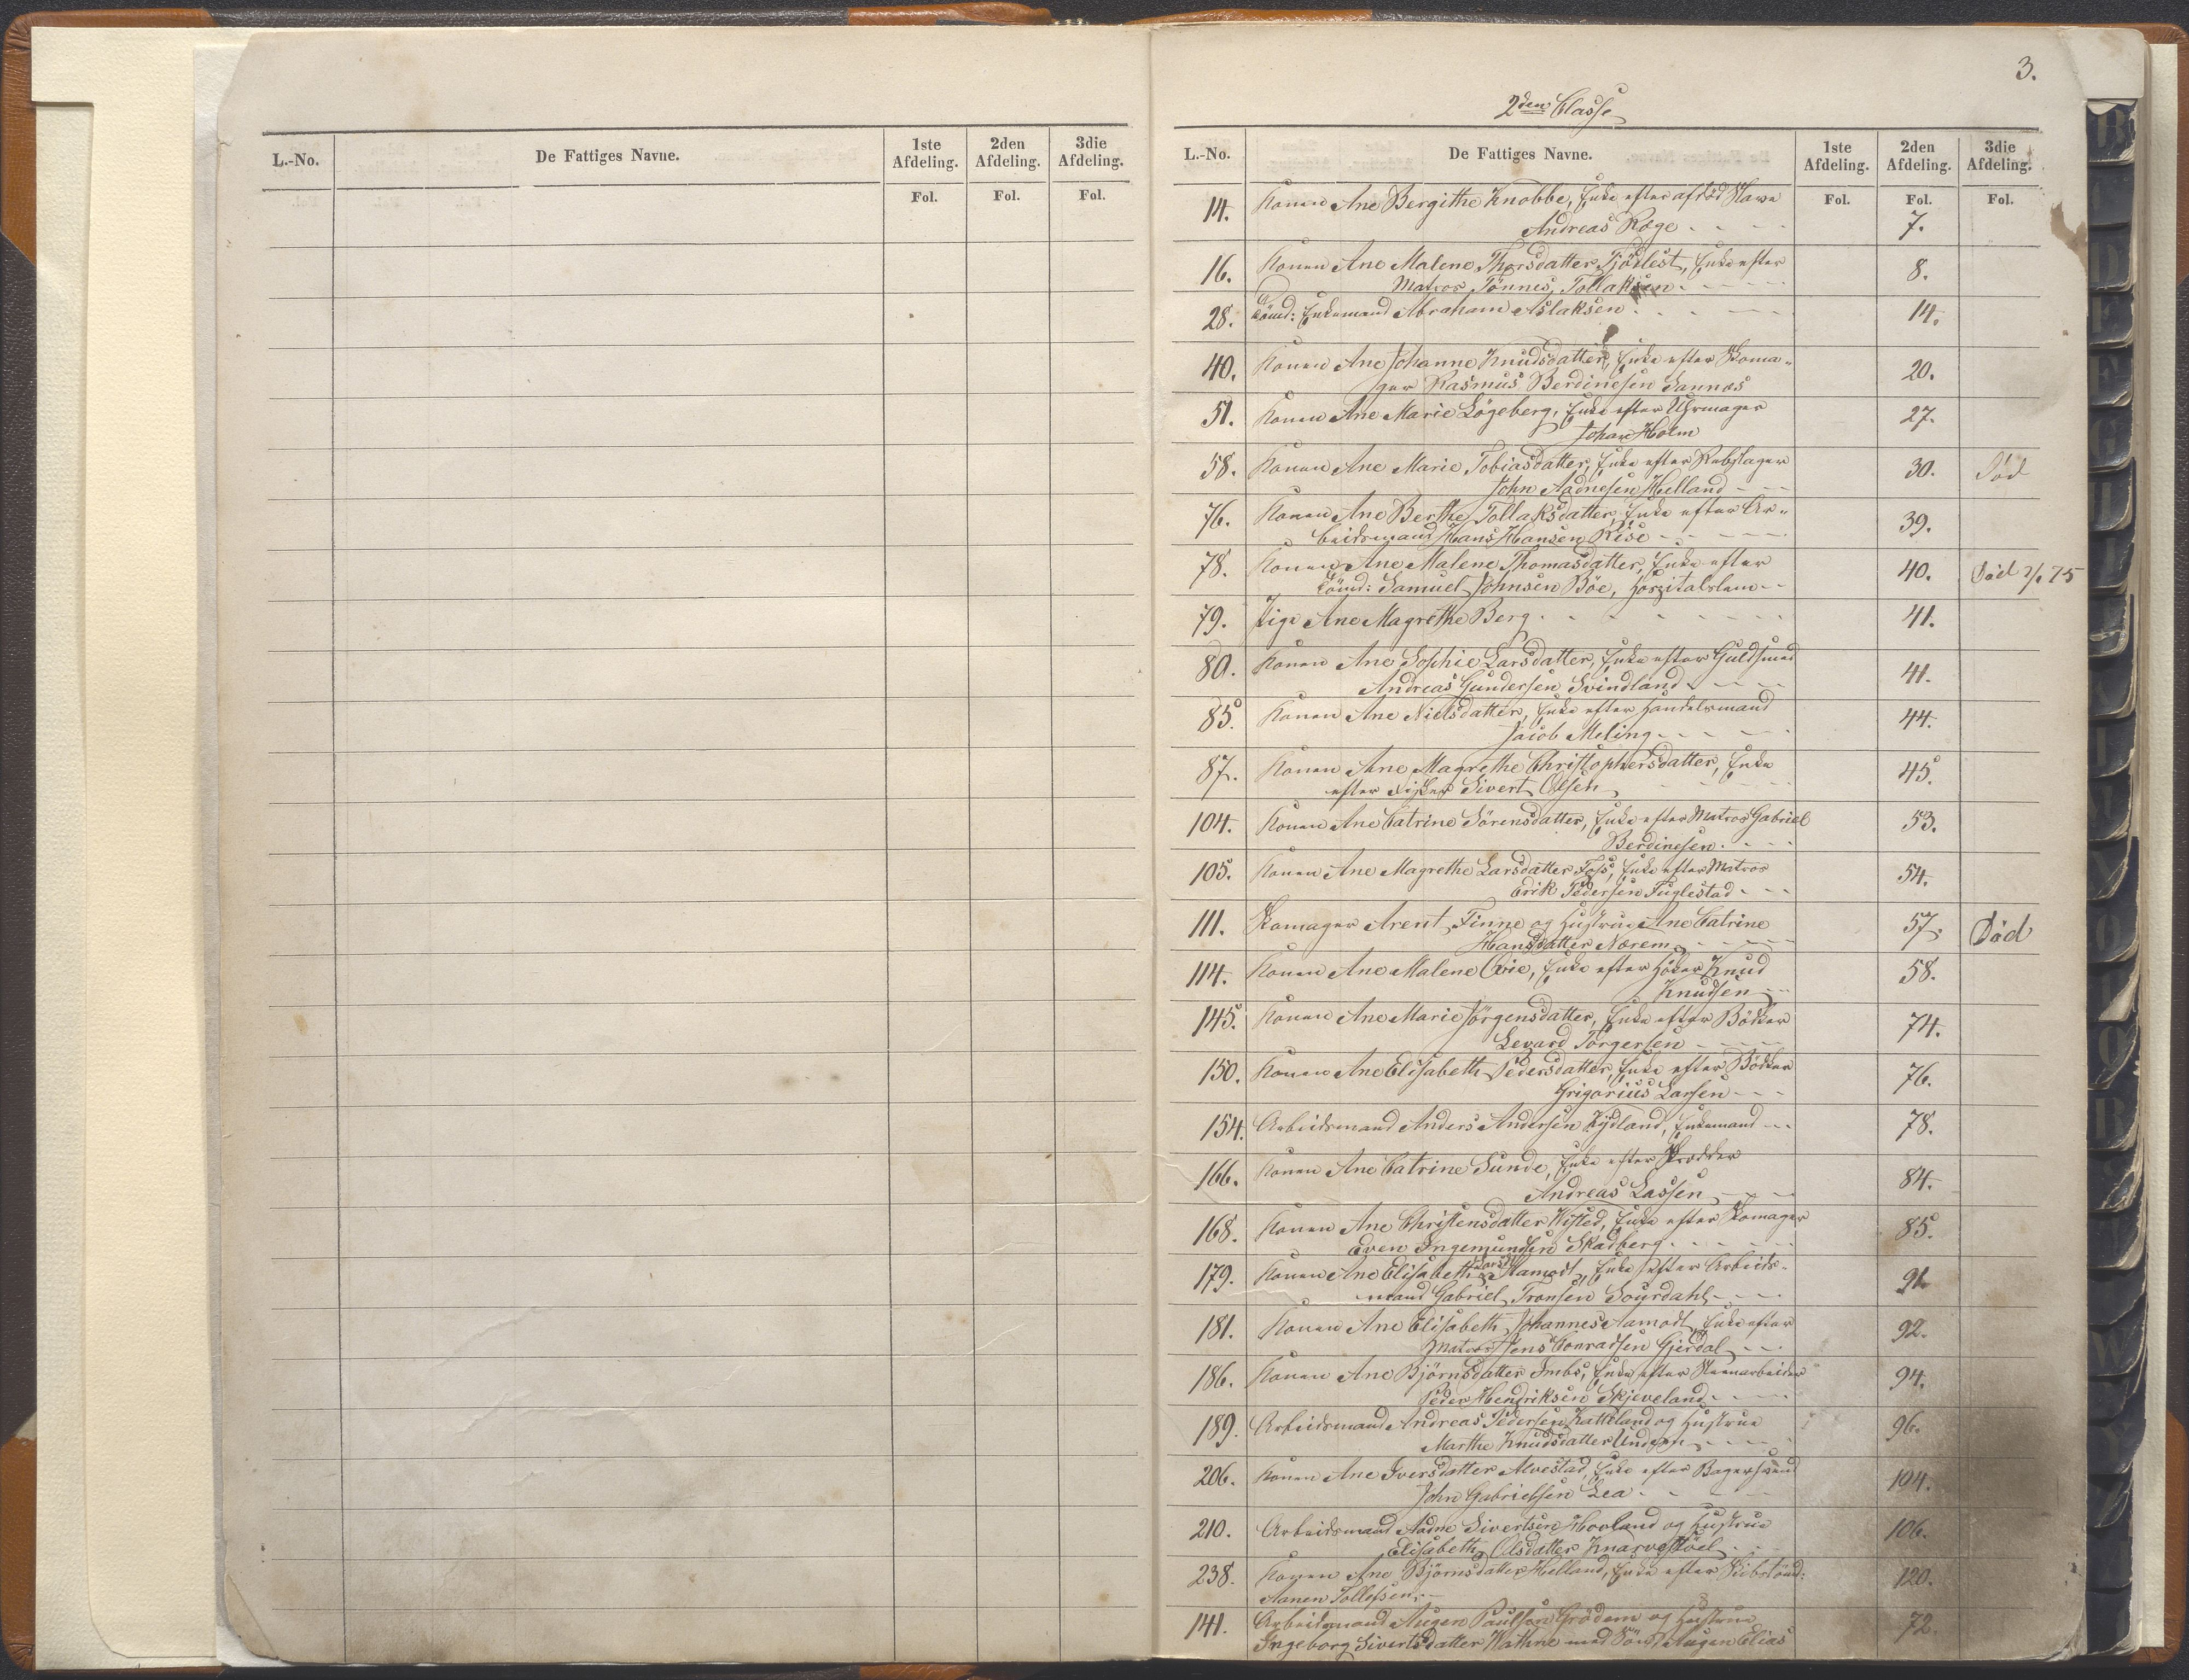 L.-No. De Fattiges Navne. 1ste Afdeling. 2den Afdeling. 3die Afdeling.
Fol. Fol. Fol.
3.
2den Classe
L.-No. De Fattiges Navne. 1ste Afdeling. 2den Afdeling. 3die Afdeling.
Fol. Fol. Fol.
14. Konen Ane Bergithe Knobbe, Enke efter afdød
Andreas Røge 7.
16. Konen Ane Malene Thorsdatter Tjødlest, Enke efter
Matros Tønnes Tollaksen 8.
28. Tømd: Enkemand Abraham Aslaksen 14.
40. Konen Ane Johanne Knudsdatter, Enke efter Skoma-
ger Rasmus Berdinesen Sannæs 20.
51. Konen Ane Marie Løgeberg, Enke efter Uhrmager
Johan Holm 27.
58. Konen Ane Marie Tobiasdatter, Enke efter Rebslager
John Aadnesen Helland 30. Død
76. Konen Ane Berthe Tollaksdatter, Enke efter Ar-
beidsmand Hans Hansen Rise 39.
78. Konen Ane Malene Thomasdatter, Enke efter
Tømd: Samuel Johnsen Bøe, Hospitalslem 40. Død 75
79. Pige Ane Magrethe Berg 41.
80. Konen Ane Sophie Larsdatter, Enke efter Guldsmed
Andreas Gundersen Svindland 41.
85. Konen Ane Nielsdatter, Enke efter Handelsmand
Jacob Meling 44.
87. Konen Ane Magrethe Christophersdatter, Enke
efter Fisker Sivert Olsen 45.
104. Konen Ane Catrine Sørensdatter, Enke efter Matros Gabriel
Berdinesen 53.
105. Konen Ane Magrethe Larsdatter Foss, Enke efter Matros
Erik Pedersen Fuglestad 54.
111. Skomager Arent Finne og Hustrue Ane Catrine
Hansdatter Nærem 57. Død
114. Konen Ane Malene Evie, Enke efter Høker Knud
Knudsen 58.
145. Konen Ane Marie Jørgensdatter, Enke efter Bødker
Levard Torgersen 74.
150. Konen Ane Elisabeth Pedersdatter, Enke efter Bødker
Grigorius Larsen 76.
154. Arbeidsmand Anders Andersen Rydland, Enkemand 78.
166. Konen Ane Catrine Sunde, Enke efter Skrædder
Andreas Lassen 84.
168. Konen Ane Christensdatter Wisted, Enke efter Skomager
Even Ingemundsen Skadberg 85.
179. Konen Ane Elisabeth Aamodt, Enke efter Arbeids-
mand Gabriel Tronsen Sourdahl 91.
181. Konen Ane Elisabeth Johannes Aamodt, Enke efter
Matros Jens Conradsen Gjerdal 92.
186. Konen Ane Bjørnsdatter Imbs, Enke efter Steenarbeider
Peder Hendriksen Skjeveland 94.
189. Arbeidsmand Andreas Pedersen Katteland og Hustrue
Marthe Knudsdatter 96.
206. Konen Ane Iversdatter Alvestad, Enke efter Bagersvend
John Gabrielsen Lea 104.
210. Arbeidsmand Aadne Sivertsen Hovland og Hustrue
Elisabeth Olsdatter Knarvestøel 106.
238. Konen Ane Bjørnsdatter Helland, Enke efter Skibstømd:
Aanen Tollefsen 120.
141. Arbeidsmand Augen Paulsen Grødem og Hustrue
Ingeborg Sivertsdatter Wathne med Søn Augen Elias 72.